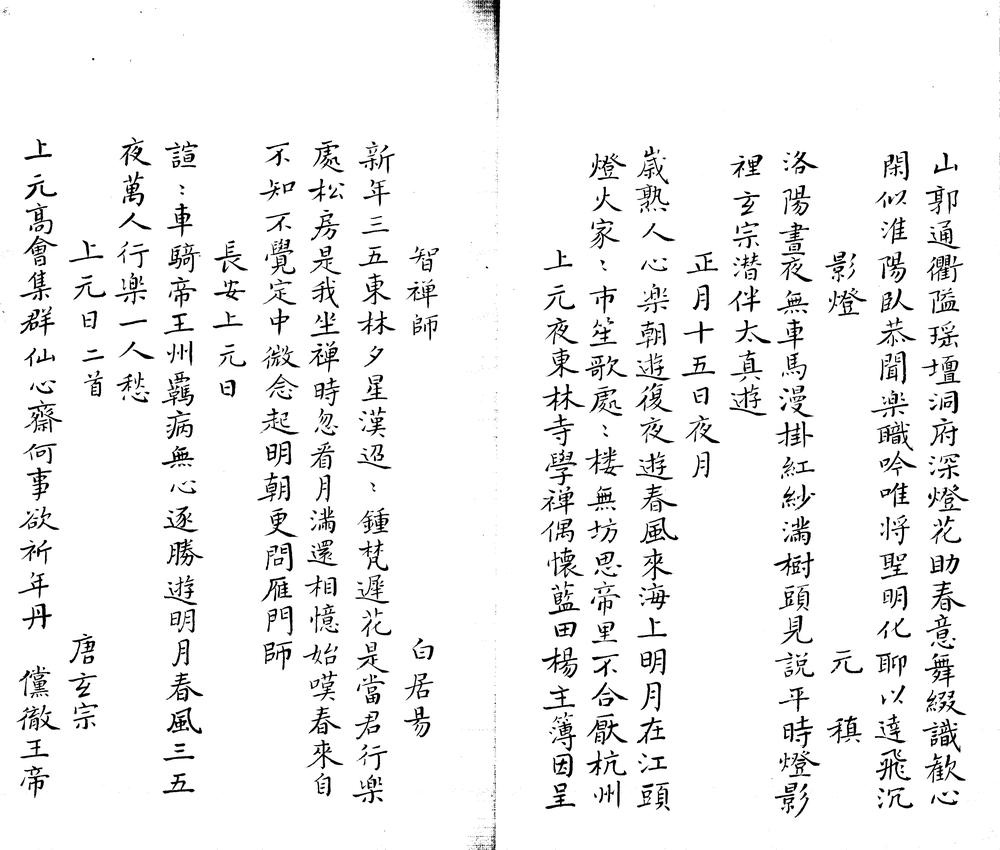 山郭通衢隘瑶壇洞府深燈花助春意舞綴識歓心
閑似淮陽臥恭聞楽職吟唯将聖明化聊以達飛沉
影燈 元稹
洛陽晝夜無車馬漫掛紅紗満樹頭見説平時燈影
裡玄宗潜伴太真遊
正月十五日夜月
歳熟人心楽朝遊復夜遊春風來海上明月在江頭
燈火家〻市笙歌處〻楼無坊思帝里不合厭杭州
上元夜東林寺學禅偶懐藍田楊主簿因呈
智禅師 白居易
新年三五東林夕星漢迢〻鍾梵遲花是當君行楽
處松房是我坐禅時忽看月満還相憶始嘆春來自
不知不覺定中微念起明朝更問雁門師
長安上元日
諠〻車騎帝王州羇病無心逐勝遊明月春風三五
夜萬人行楽一人愁
上元日二首 唐玄宗
上元高會集群仙心齋何事欲祈年丹 儻徹王帝